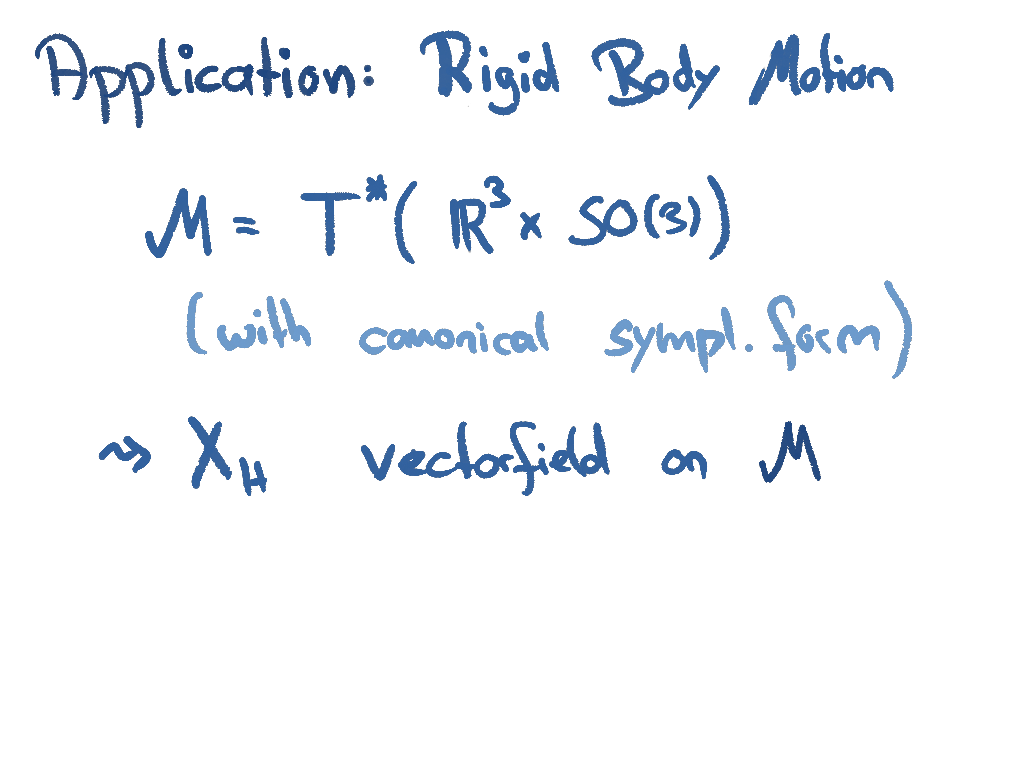 Application: Rigid Body Motion
M = T*(ℝ³ × SO(3))
(with canonical sympl. form)
⇝ X_H vectorfield on M